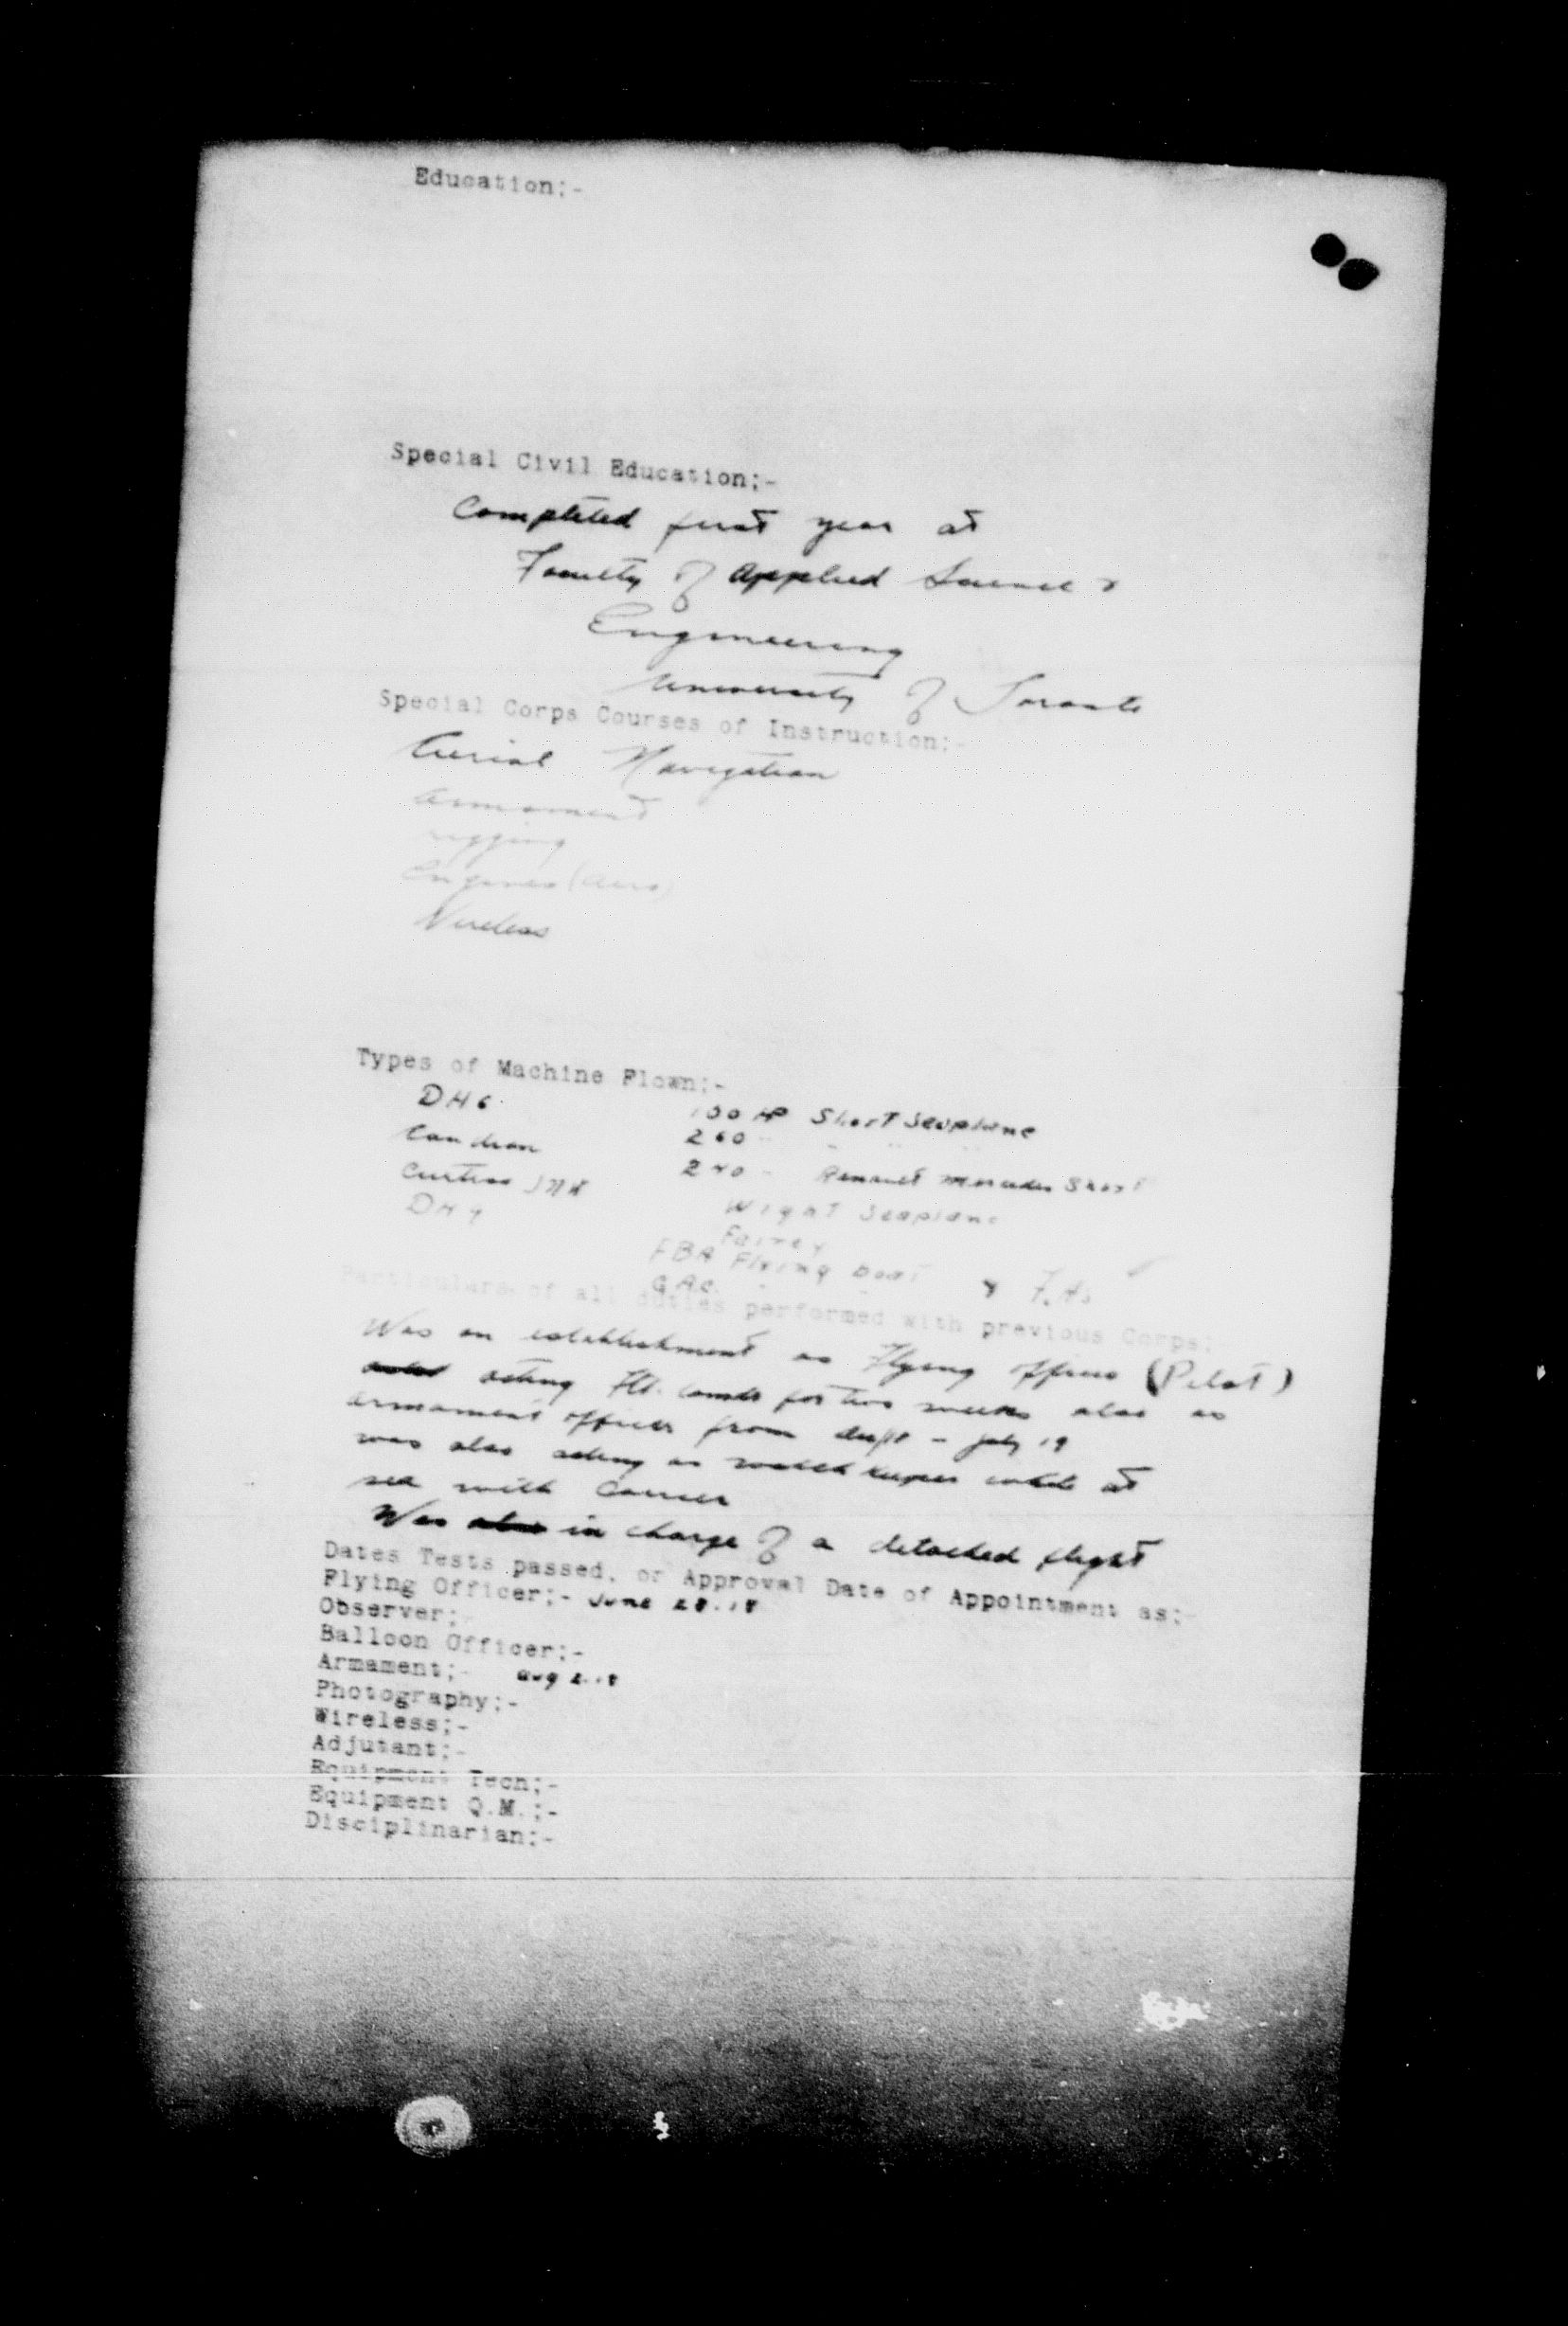 Education;-
Special Civil Education;-
Completed first year at
Faculty of Applied Science &
Engineering
University of Toronto
Special Corps Courses of Instruction;-
Aerial Navigation
Armament
rigging
Engines (Aero)
Wireless
Types of Machine Flown;-
DH6. 100 HP Short Seaplane
Caudron 260 " " "
Curtiss JN4 240 - Renault Mercedes Short
DH4 Wight Seaplane
Fairey
FBA Flying boat & F.
Particulars of all duties performed with previous Corps;
Was on establishment as Flying officer (Pilot)
acting Flt. comdr for two weeks also as
armament officer from Sept - July 19
was also acting as watch keeper while at
sea with
Was also in charge of a detached flight
Dates Tests passed, or Approval Date of Appointment as;-
Flying Officer;- June 28.18
Observer;
Balloon Officer;-
Armament;- Aug 18
Photography;-
Wireless;-
Adjutant;-
Equipment Tech;-
Equipment Q.M.;-
Disciplinarian;-